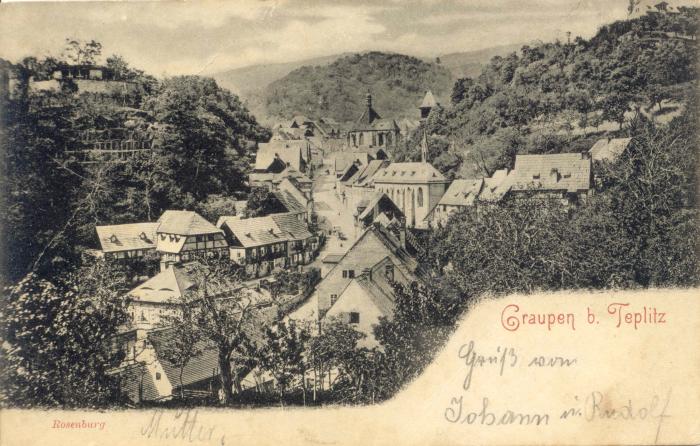 Graupen b. Teplitz
Gruß vom
Johann u. Rudolf
Rosenburg
Mutter.